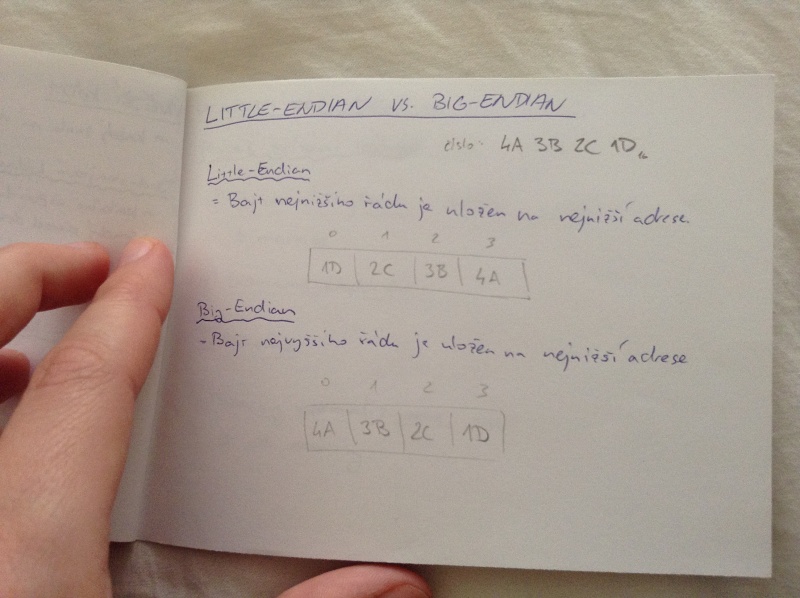 LITTLE-ENDIAN vs. BIG-ENDIAN
číslo: 4A 3B 2C 1D
Little-Endian
= Bajt nejnižšího řádu je uložen na nejnižší adrese.
0 1 2 3
1D 2C 3B 4A
Big-Endian
- Bajt nejvyššího řádu je uložen na nejnižší adrese
0 1 2 3
4A 3B 2C 1D